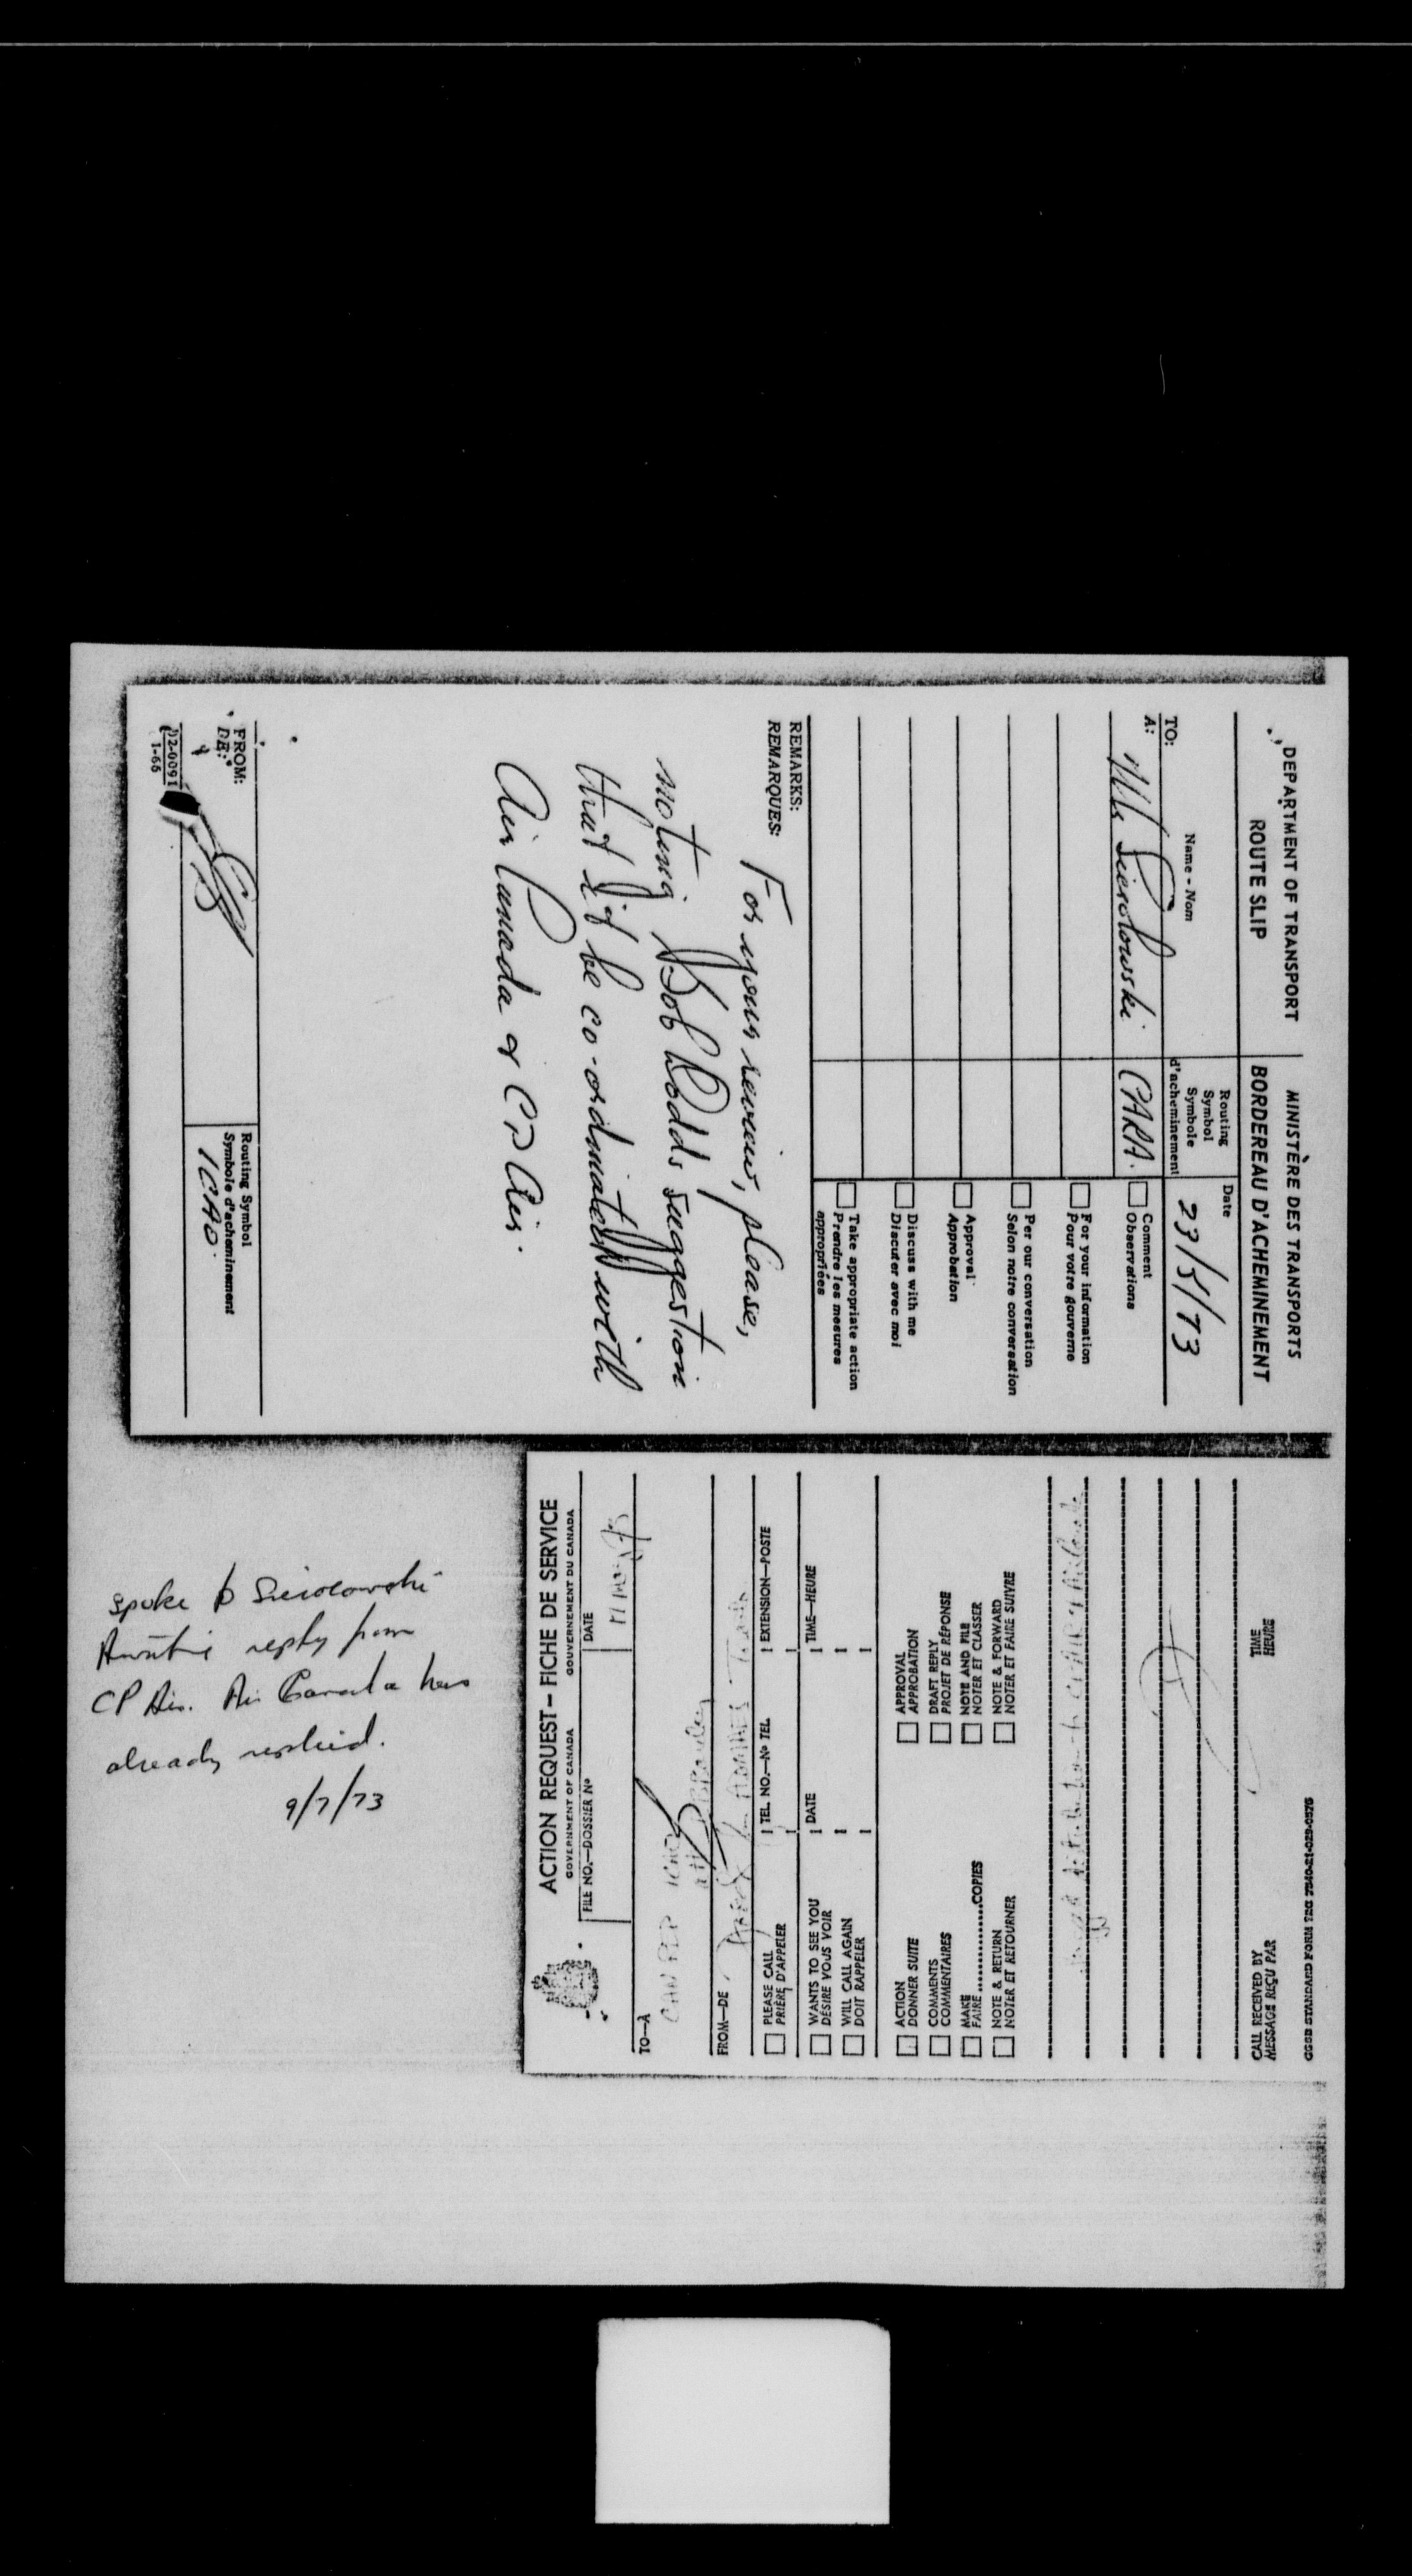 DEPARTMENT OF TRANSPORT
MINISTÈRE DES TRANSPORTS
ROUTE SLIP
BORDEREAU D'ACHEMINEMENT
Name - Nom
Routing
Symbol
Symbole
d'acheminement
Date
23/5/73
TO:
A:
Mr Sierolowski
CARA.
Comment
Observations
For your information
Pour votre gouverne
Per our conversation
Selon notre conversation
Approval
Approbation
Discuss with me
Discuter avec moi
Take appropriate action
Prendre les mesures
appropriées
REMARKS:
REMARQUES:
For your review, please,
noting Bob Dodds suggestion
that it be co-ordinated with
Air Canada & CP Air.
FROM:
DE:
Routing Symbol
Symbole d'acheminement
ICAO.
12-0091
1-66
ACTION REQUEST – FICHE DE SERVICE
GOVERNMENT OF CANADA
GOUVERNEMENT DU CANADA
FILE NO.—DOSSIER Nº
DATE
TO—À
FROM—DE
PLEASE CALL
PRIÈRE D'APPELER
TEL. NO.—Nº TEL.
EXTENSION—POSTE
WANTS TO SEE YOU
DÉSIRE VOUS VOIR
DATE
TIME—HEURE
WILL CALL AGAIN
DOIT RAPPELER
ACTION
DONNER SUITE
APPROVAL
APPROBATION
COMMENTS
COMMENTAIRES
DRAFT REPLY
PROJET DE RÉPONSE
MAKE
FAIRE..............COPIES
NOTE AND FILE
NOTER ET CLASSER
NOTE & RETURN
NOTER ET RETOURNER
NOTE & FORWARD
NOTER ET FAIRE SUIVRE
CALL RECEIVED BY
MESSAGE REÇU PAR
TIME
HEURE
CGSB STANDARD FORM 7540-21-029-0575
spoke to Sierolowski
Awaiting reply from
CP Air. Air Canada has
already replied.
9/7/73